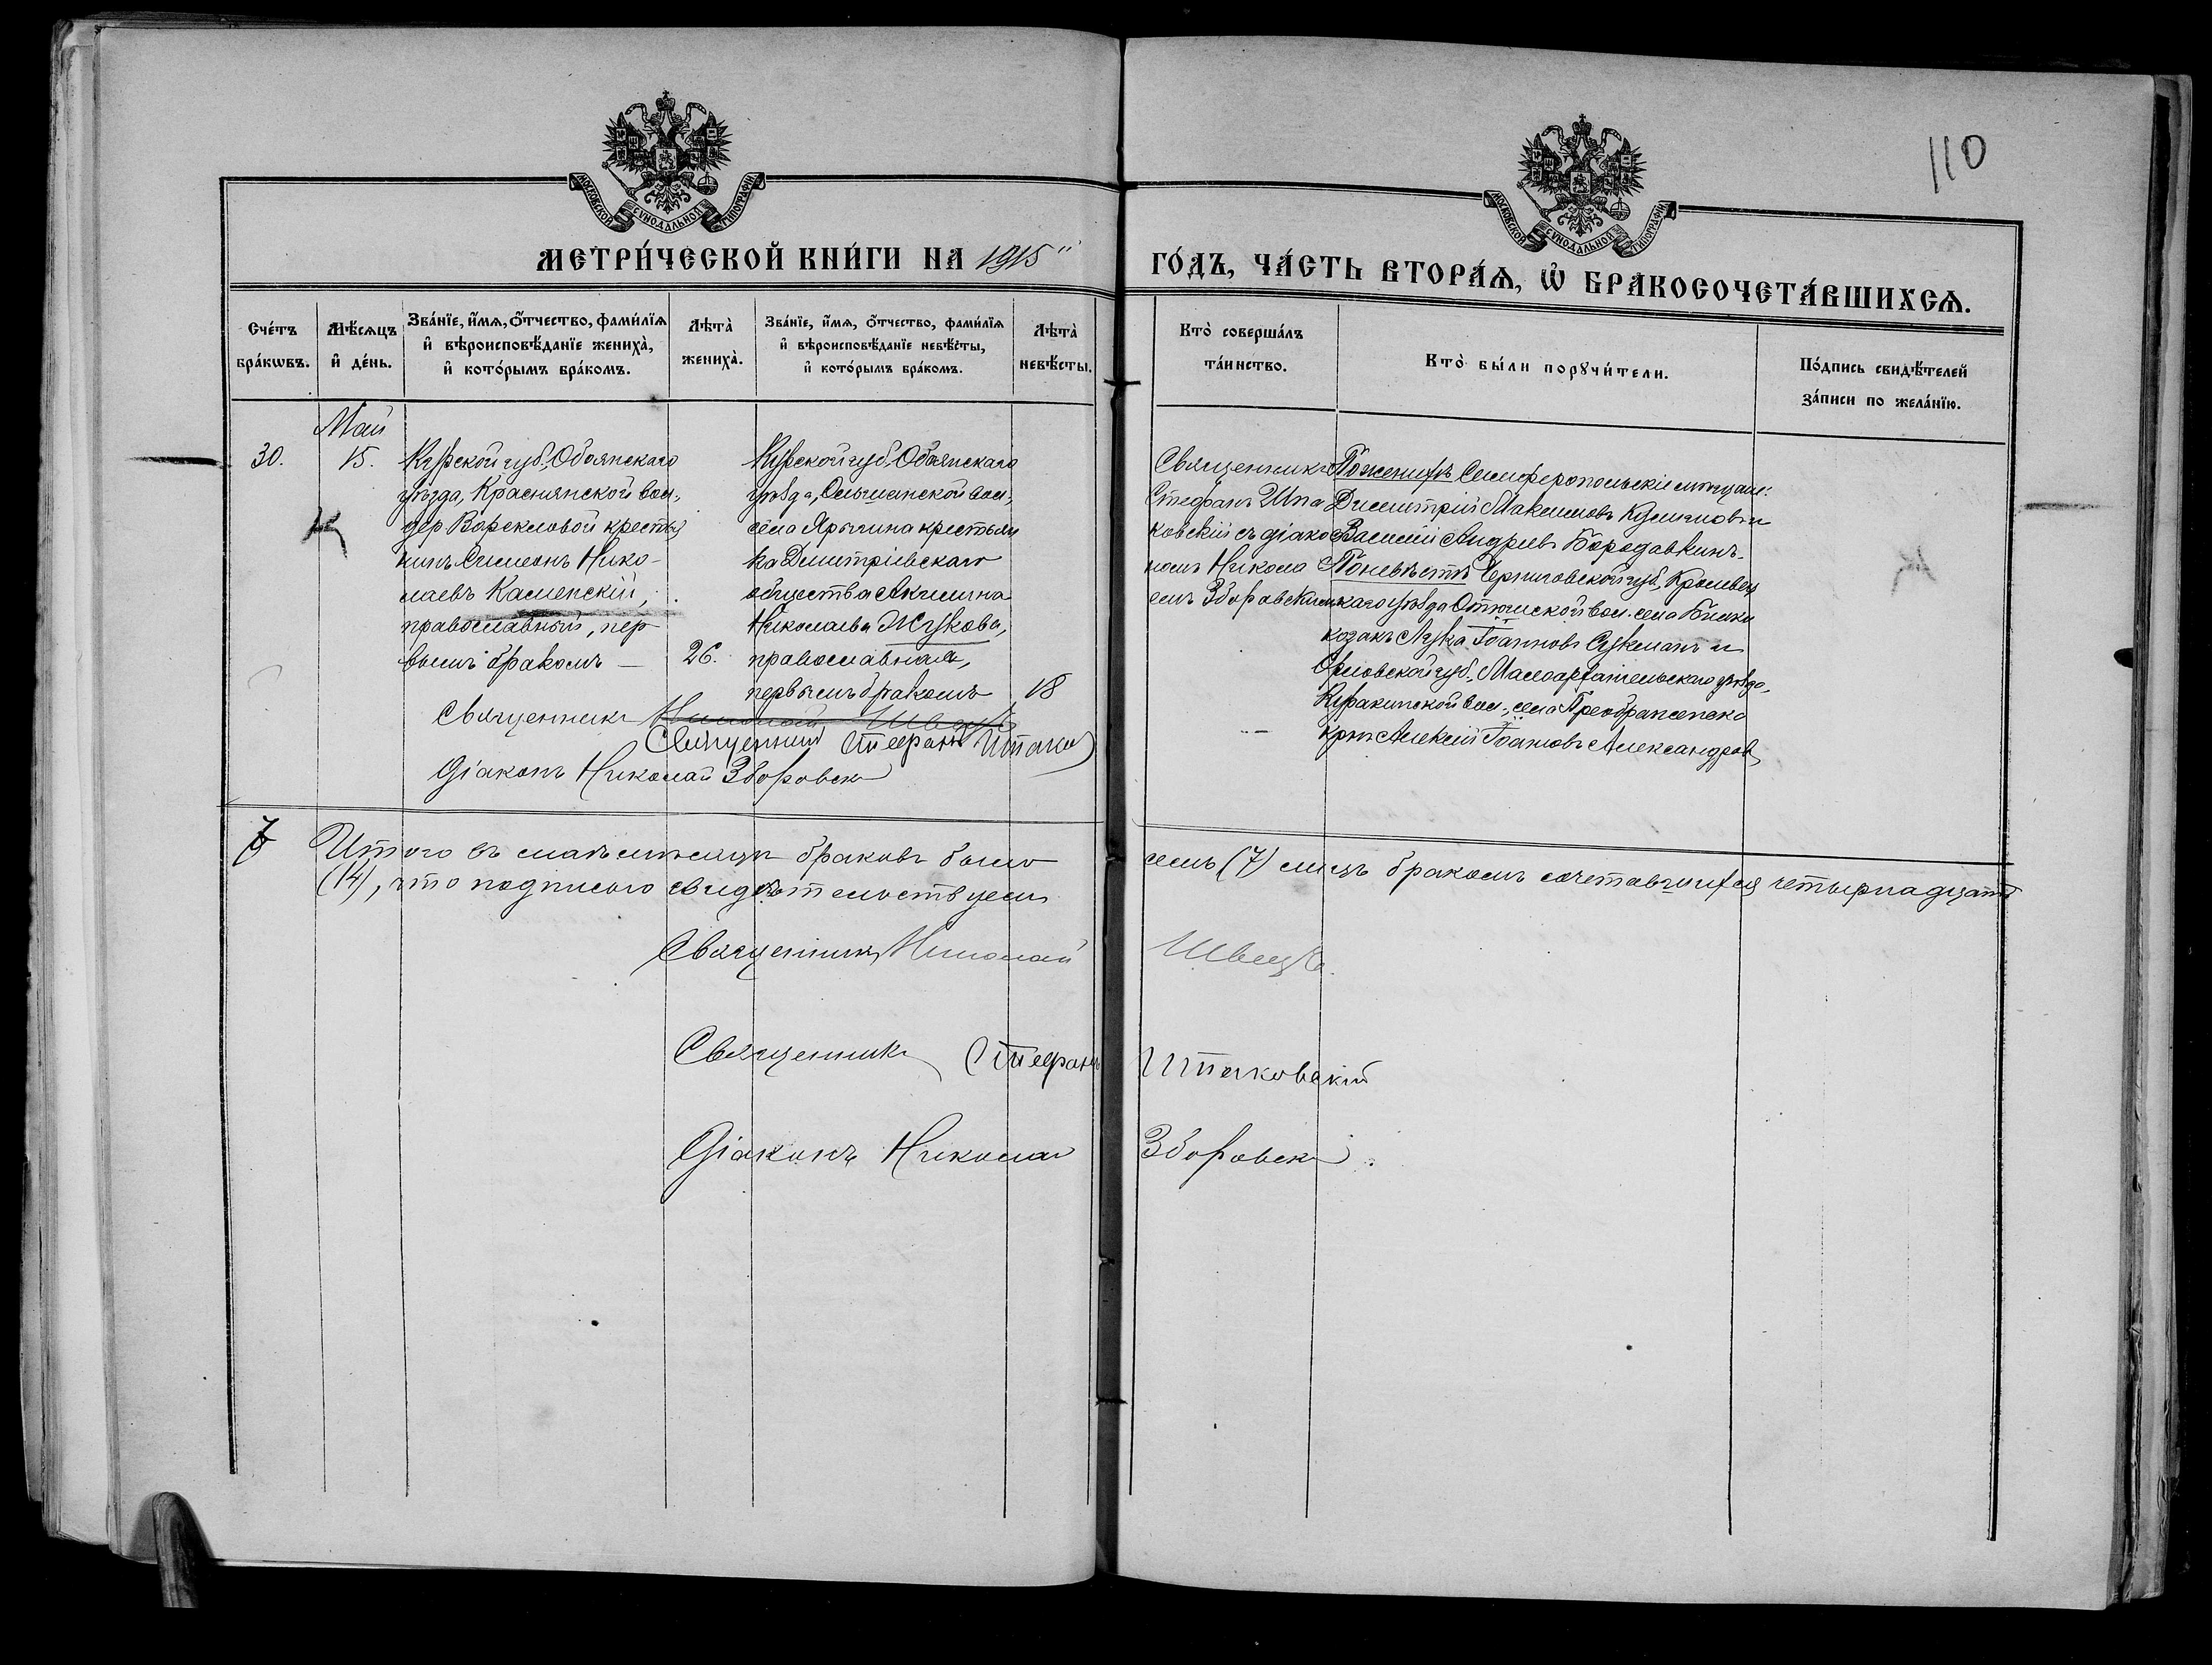 110
МОСКОВСКОЙ СѴНОДАЛЬНОЙ ТИПОГРАФІИ
МОСКОВСКОЙ СѴНОДАЛЬНОЙ ТИПОГРАФІИ
МЕТРИ́ЧЕСКОЙ КНИ́ГИ НА 1915
ГО́ДЪ, ЧА́СТЬ ВТОРА́Я, Ѡ БРАКОСОЧЕТА́ВШИХСЯ.
Сче́тъ бра́кѡвъ.
Мѣ́сяцъ и҆ де́нь.
Зва́нїе, и҆́мя, ѻ҆́тчество, фами́лїя и҆ вѣроисповѣ́данїе жениха̀, и҆ кото́рымъ бра́комъ.
Лѣта̀ жениха̀.
Зва́нїе, и҆́мя, ѻ҆́тчество, фами́лїя и҆ вѣроисповѣ́данїе невѣ́сты, и҆ кото́рымъ бра́комъ.
Лѣта̀ невѣ́сты.
Кто̀ соверша́лъ та́инство.
Кто̀ бы́ли порꙋчи́тели.
По́дпись свидѣ́телей за́писи по жела́нїю.
30.
Май
15.
Курской губ., Обоянскаго
уѣзда, Краснянской вол.,
дер. Ворскловой крестья
нинъ Симеонъ Нико-
лаевъ Каменскій,
православный, пер
вымъ бракомъ —
26.
Курской губ., Обоянскаго
уѣзда, Ольшанской вол.,
села Ярыгина крестьян
ка Димитріевскаго
общества Акилина
Николаева Жукова,
православная,
первымъ бракомъ
18
Священникъ
Стефанъ Ипа
ковскій съ діако
номъ Никола
емъ Зборовскимъ
По женихѣ Симферопольскіе мѣщане:
Димитрій Максимовъ и
Василій Андреевъ Бородавкинъ.
По невѣстѣ Черниговской губ., Кролевец
каго уѣзда вол. села
козакъ Лука Іоанновъ и
Орловской губ., Малоархангельскаго уѣзда,
Куракинской вол., села Преображенско
кр-нъ Алексій Іоанновъ Александров
Священникъ Николай Швецъ
Священникъ Стефанъ Ипако
Діаконъ Николай Зборовск
7
Итого въ маѣ мѣсяцѣ браковъ было семь (7) лицъ бракомъ сочетавшихся четырнадцать
(14), что подписью свидѣтельствуемъ
Священникъ Николай Швецъ.
Священникъ Стефанъ Ипаковскій
Діаконъ Николай Зборовск